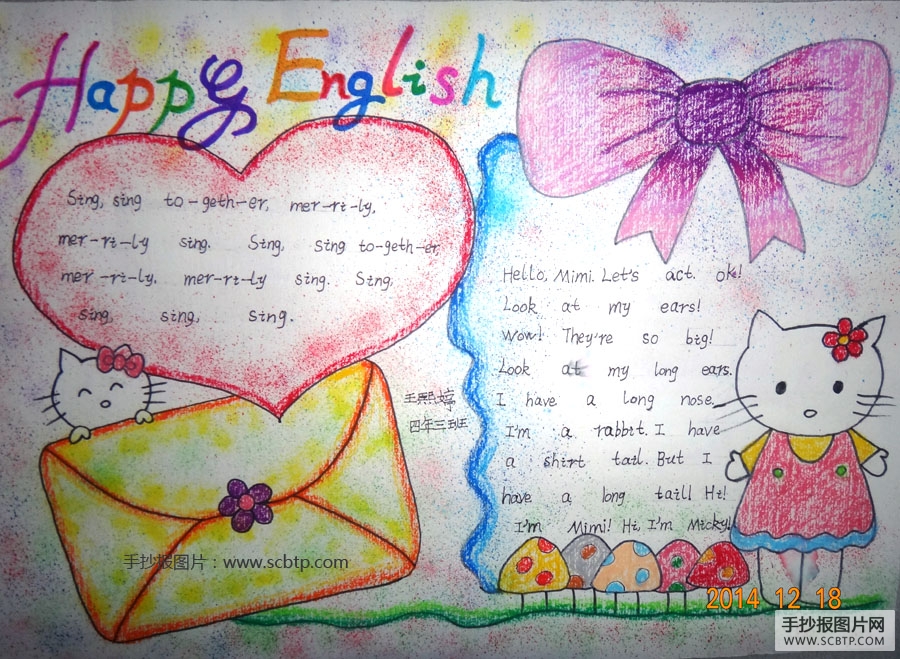 Happy English
Sing, sing to-geth-er, mer-ri-ly,
mer-ri-ly sing. Sing, sing to-geth-er
mer-ri-ly, mer-ri-ly sing. Sing,
sing, sing, sing.
王熙婷
四年三班
Hello, Mimi. Let's act. ok!
Look at my ears!
Wow! They're so big!
Look at my long ears.
I have a long nose.
I'm a rabbit. I have
a shirt tail. But I
have a long tail! Hi!
I'm Mimi! Hi, I'm Micky!
手抄报图片：www.scbtp.com
2014 12 18
手抄报图片网
WWW.SCBTP.COM